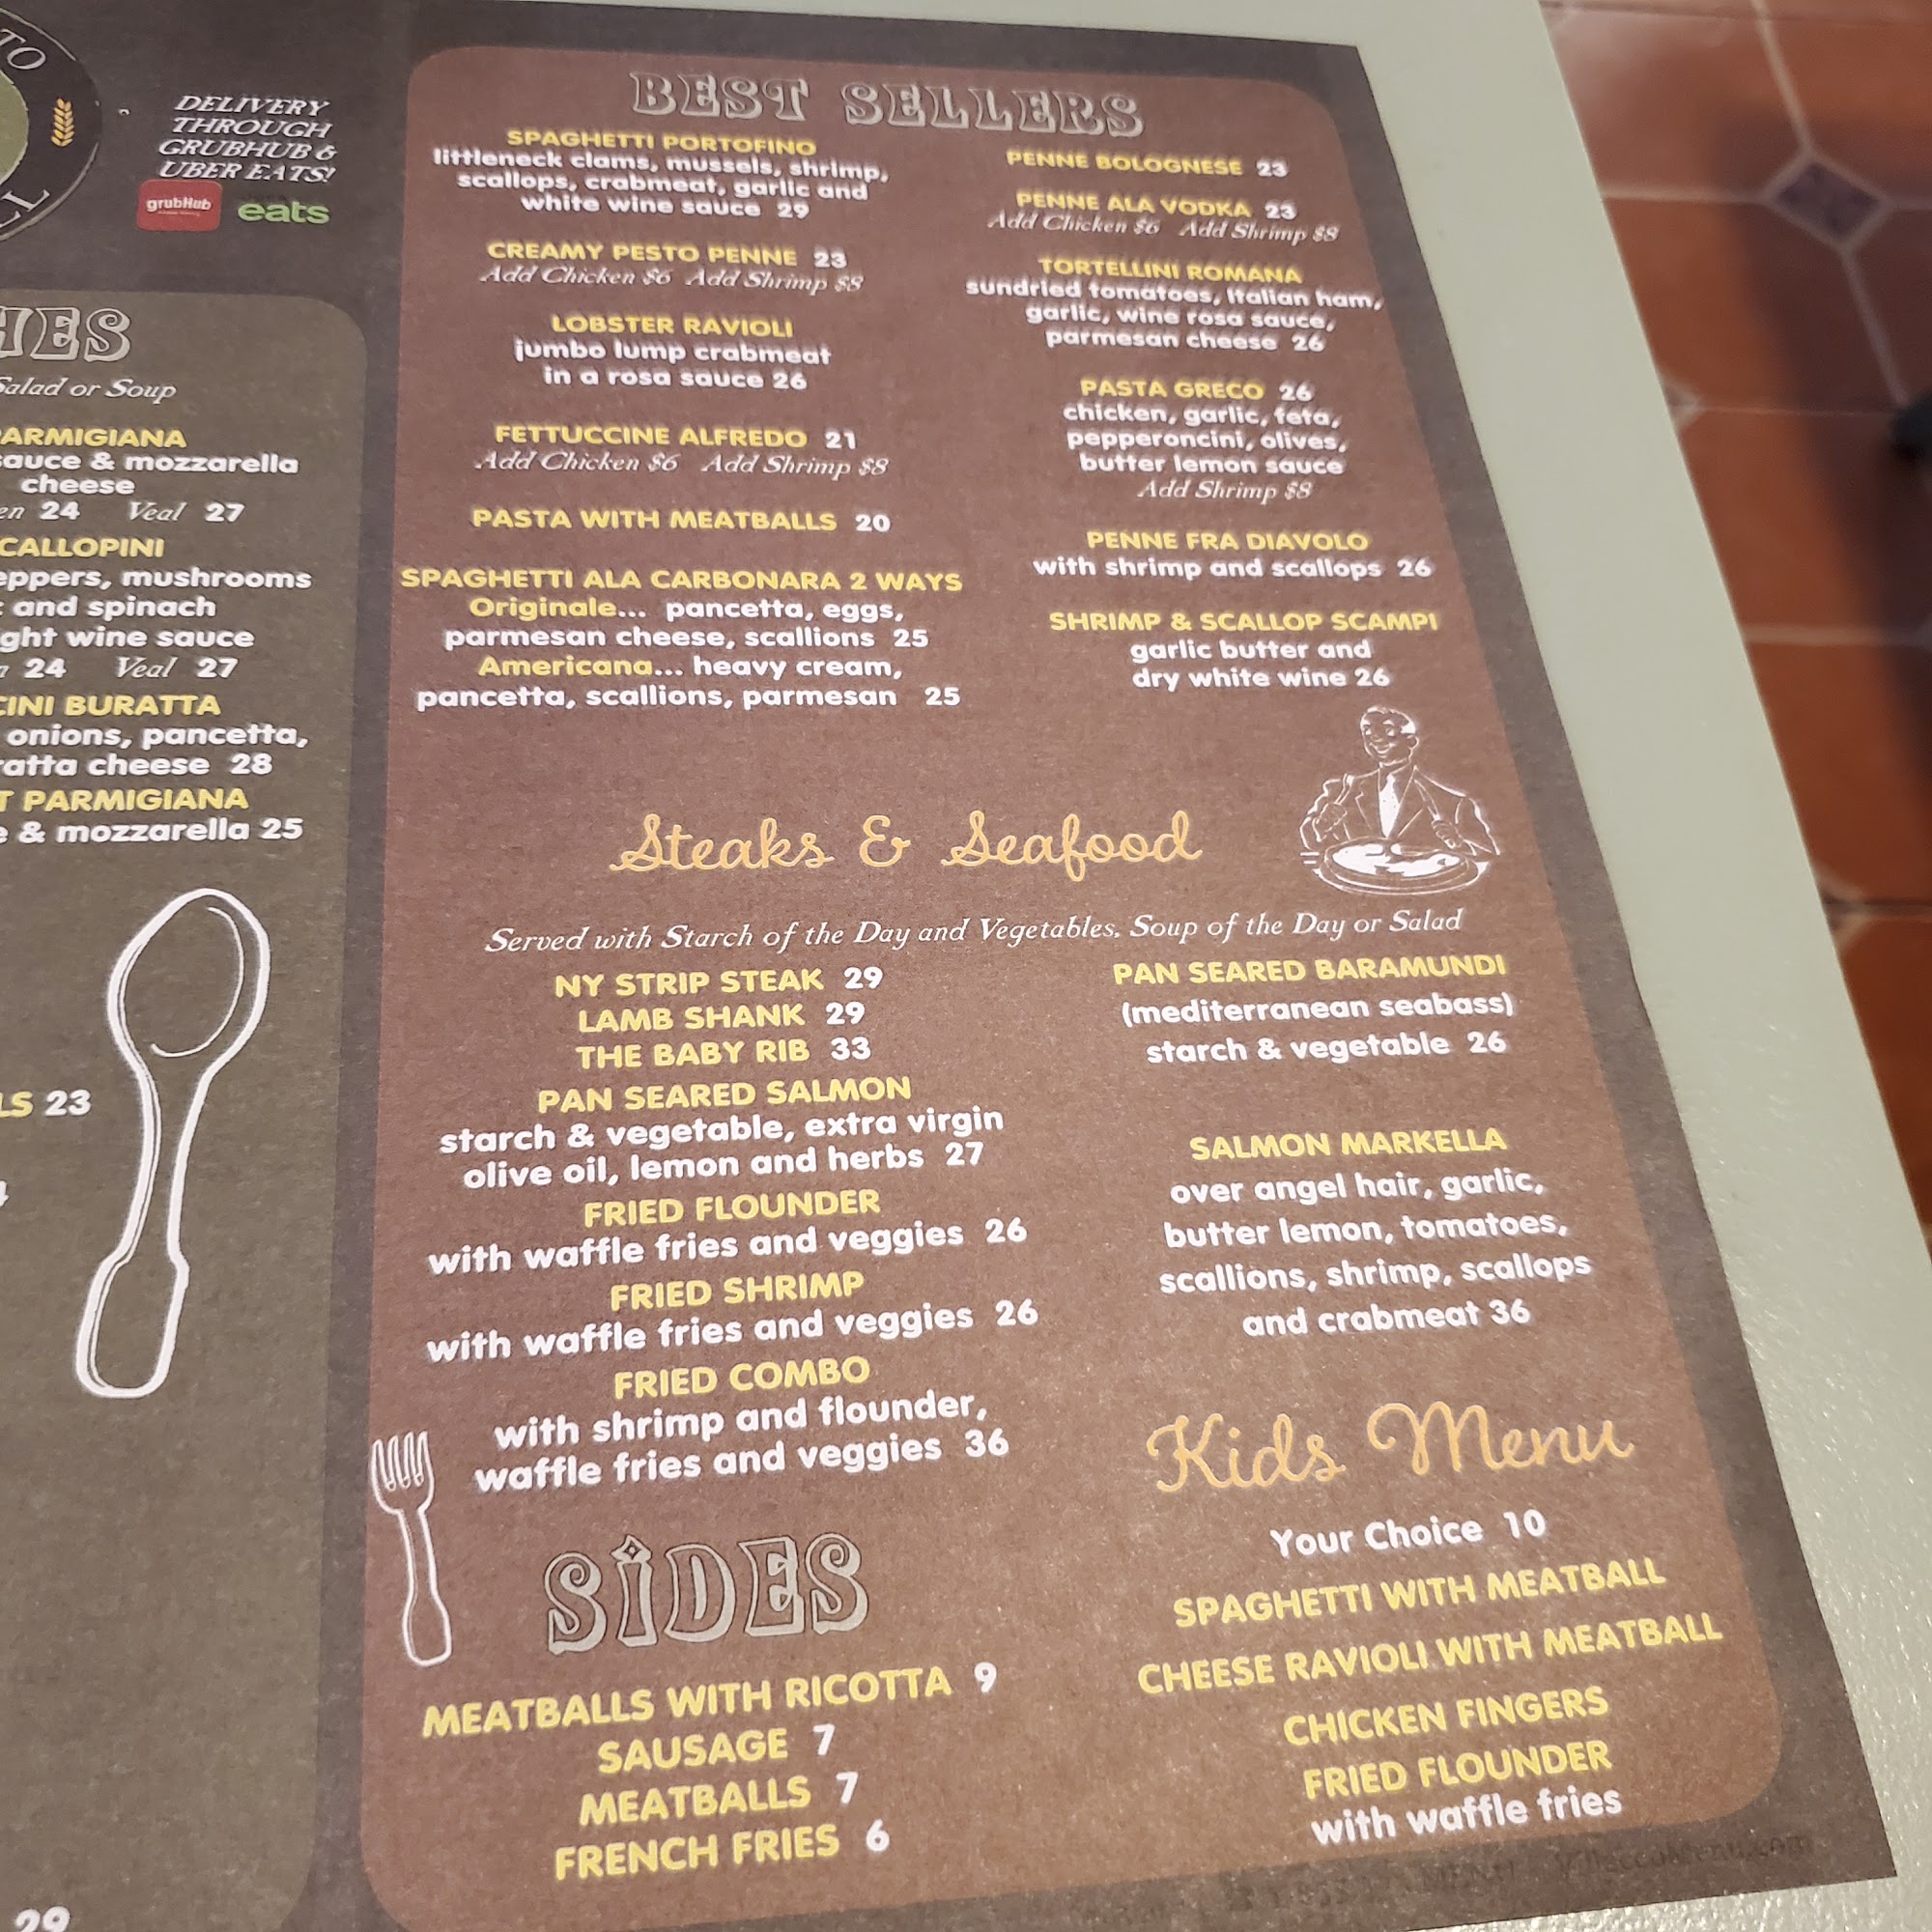 TO
LL
DELIVERY
THROUGH
GRUBHUB &
UBER EATS!
grubHub
eats
HES
Salad or Soup
ARMIGIANA
sauce & mozzarella
cheese
en 24 Veal 27
CALLOPINI
eppers, mushrooms
and spinach
ght wine sauce
24 Veal 27
CINI BURATTA
onions, pancetta,
ratta cheese 28
T PARMIGIANA
e & mozzarella 25
LS 23
29
BEST SELLERS
SPAGHETTI PORTOFINO
littleneck clams, mussels, shrimp,
scallops, crabmeat, garlic and
white wine sauce 29
CREAMY PESTO PENNE 23
Add Chicken $6 Add Shrimp $8
LOBSTER RAVIOLI
jumbo lump crabmeat
in a rosa sauce 26
FETTUCCINE ALFREDO 21
Add Chicken $6 Add Shrimp $8
PASTA WITH MEATBALLS 20
SPAGHETTI ALA CARBONARA 2 WAYS
Originale... pancetta, eggs,
parmesan cheese, scallions 25
Americana... heavy cream,
pancetta, scallions, parmesan 25
PENNE BOLOGNESE 23
PENNE ALA VODKA 23
Add Chicken $6 Add Shrimp $8
TORTELLINI ROMANA
sundried tomatoes, Italian ham,
garlic, wine rosa sauce,
parmesan cheese 26
PASTA GRECO 26
chicken, garlic, feta,
pepperoncini, olives,
butter lemon sauce
Add Shrimp $8
PENNE FRA DIAVOLO
with shrimp and scallops 26
SHRIMP & SCALLOP SCAMPI
garlic butter and
dry white wine 26
Steaks & Seafood
Served with Starch of the Day and Vegetables, Soup of the Day or Salad
NY STRIP STEAK 29
LAMB SHANK 29
THE BABY RIB 33
PAN SEARED SALMON
starch & vegetable, extra virgin
olive oil, lemon and herbs 27
FRIED FLOUNDER
with waffle fries and veggies 26
FRIED SHRIMP
with waffle fries and veggies 26
FRIED COMBO
with shrimp and flounder,
waffle fries and veggies 36
PAN SEARED BARAMUNDI
(mediterranean seabass)
starch & vegetable 26
SALMON MARKELLA
over angel hair, garlic,
butter lemon, tomatoes,
scallions, shrimp, scallops
and crabmeat 36
SIDES
MEATBALLS WITH RICOTTA 9
SAUSAGE 7
MEATBALLS 7
FRENCH FRIES 6
Kids Menu
Your Choice 10
SPAGHETTI WITH MEATBALL
CHEESE RAVIOLI WITH MEATBALL
CHICKEN FINGERS
FRIED FLOUNDER
with waffle fries